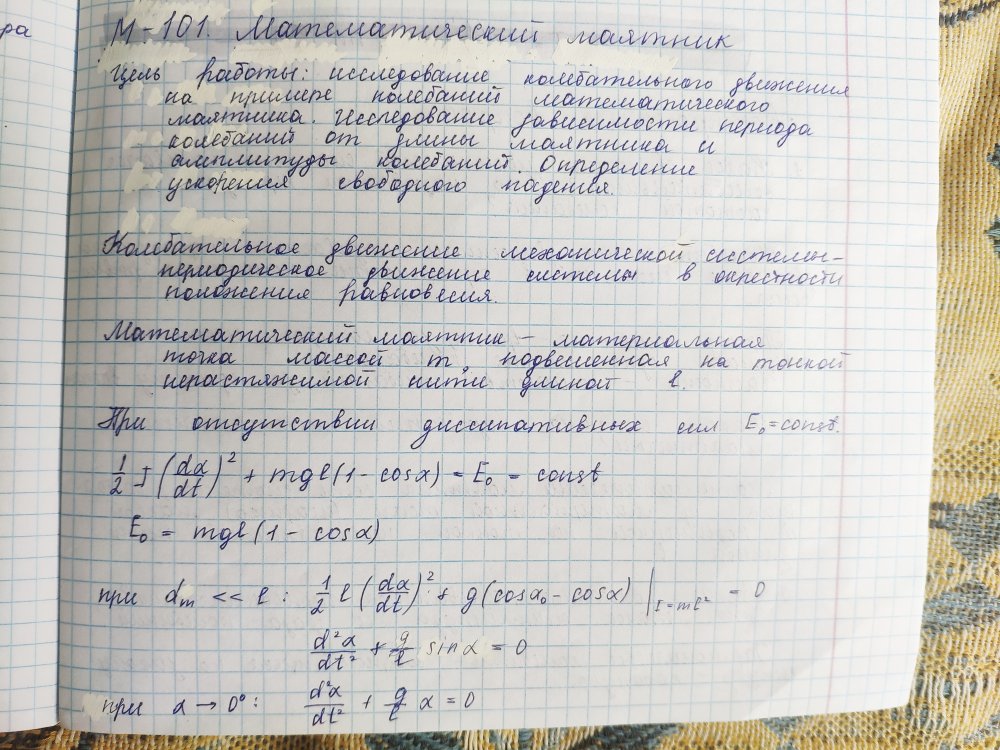 ра
М-101. Математический маятник
Цель работы: исследование колебательного движения
на примере колебаний математического
маятника. Исследование зависимости периода
колебаний от длины маятника и
амплитуды колебаний. Определение
ускорения свободного падения.
Колебательное движение механической системы-
периодическое движение системы в окрестности
положения равновесия.
Математический маятник - материальная
точка массой m, подвешенная на тонкой
нерастяжимой нити длиной l
При отсутствии диссипативных сил E₀=const.
1/2 I (dα/dt)² + mgl(1 - cosα) = E₀ = const
E₀ = mgl(1 - cosα)
при dₘ << l : 1/2 l (dα/dt)² + g(cosα₀ - cosα) |I=ml² = 0
d²α/dt² + g/l sinα = 0
при α → 0° : d²α/dt² + g/l α = 0